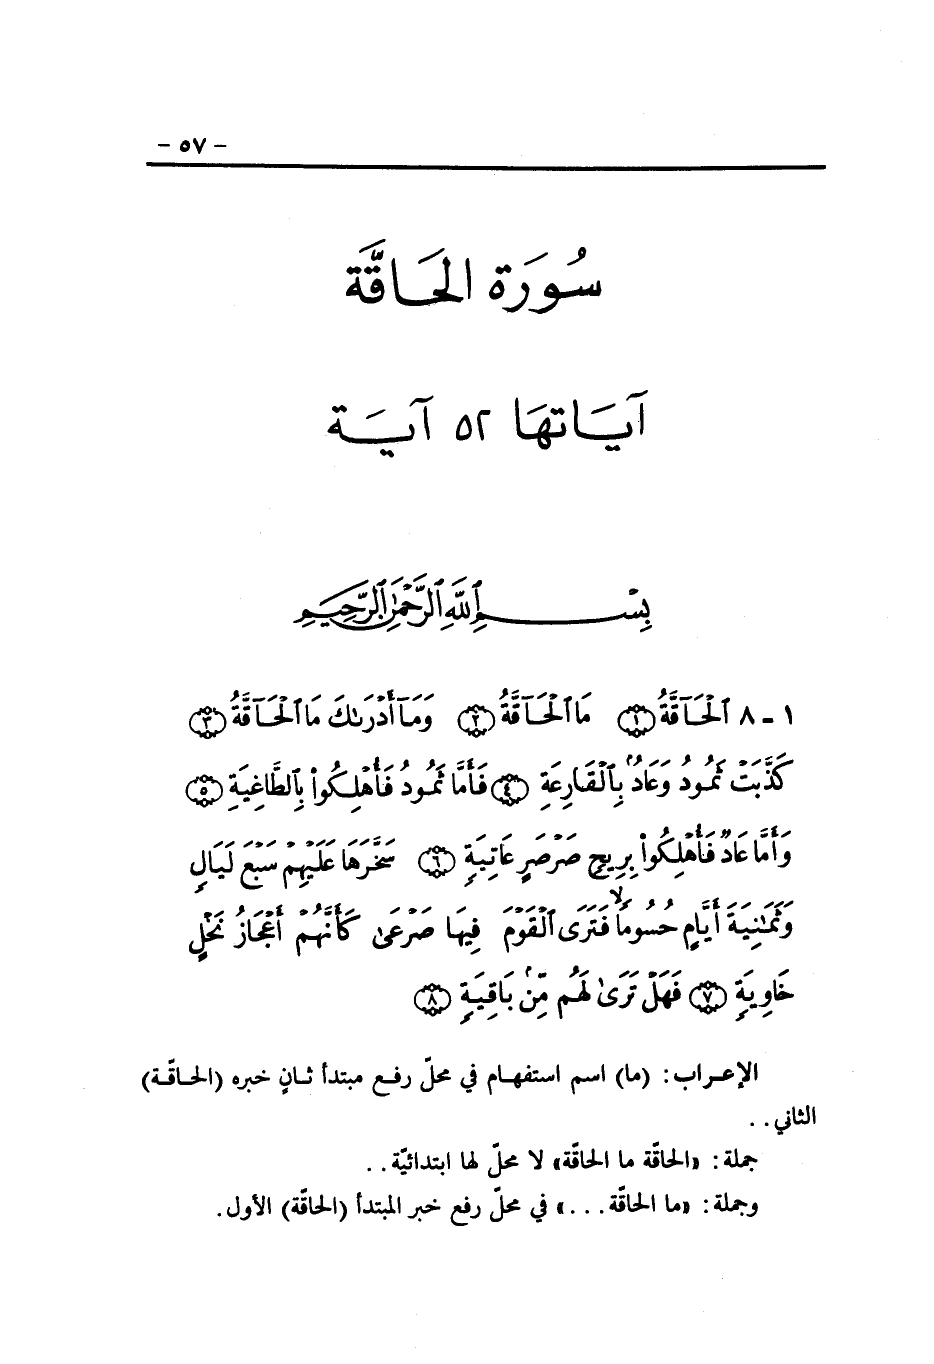 - ٥٧ -
سُورَة الحَاقَّة
آيَاتهَا ٥٢ آيَة
بِسْمِ ٱللَّهِ ٱلرَّحْمَٰنِ ٱلرَّحِيمِ
١ - ٨ ٱلْحَآقَّةُ ﴿١﴾ مَا ٱلْحَآقَّةُ ﴿٢﴾ وَمَآ أَدْرَىٰكَ مَا ٱلْحَآقَّةُ ﴿٣﴾
كَذَّبَتْ ثَمُودُ وَعَادُۢ بِٱلْقَارِعَةِ ﴿٤﴾ فَأَمَّا ثَمُودُ فَأُهْلِكُوا۟ بِٱلطَّاغِيَةِ ﴿٥﴾
وَأَمَّا عَادٌ فَأُهْلِكُوا۟ بِرِيحٍ صَرْصَرٍ عَاتِيَةٍ ﴿٦﴾ سَخَّرَهَا عَلَيْهِمْ سَبْعَ لَيَالٍ
وَثَمَٰنِيَةَ أَيَّامٍ حُسُومًا ۙ فَتَرَى ٱلْقَوْمَ فِيهَا صَرْعَىٰ كَأَنَّهُمْ أَعْجَازُ نَخْلٍ
خَاوِيَةٍ ﴿٧﴾ فَهَلْ تَرَىٰ لَهُم مِّنۢ بَاقِيَةٍ ﴿٨﴾
الإعراب: (ما) اسم استفهام في محلّ رفع مبتدأ ثانٍ خبره (الحاقّة)
الثاني..
جملة: «الحاقّة ما الحاقّة» لا محلّ لها ابتدائيّة..
وجملة: «ما الحاقّة...» في محلّ رفع خبر المبتدأ (الحاقّة) الأول.